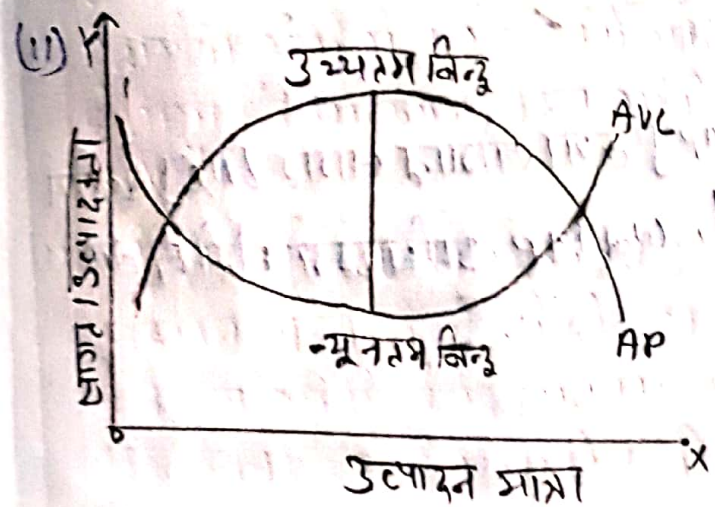 (ii) Y
उच्चतम बिन्दू
AVC
लागत / उत्पादकता
न्यूनतम बिन्दू
AP
0
X
उत्पादन मात्रा